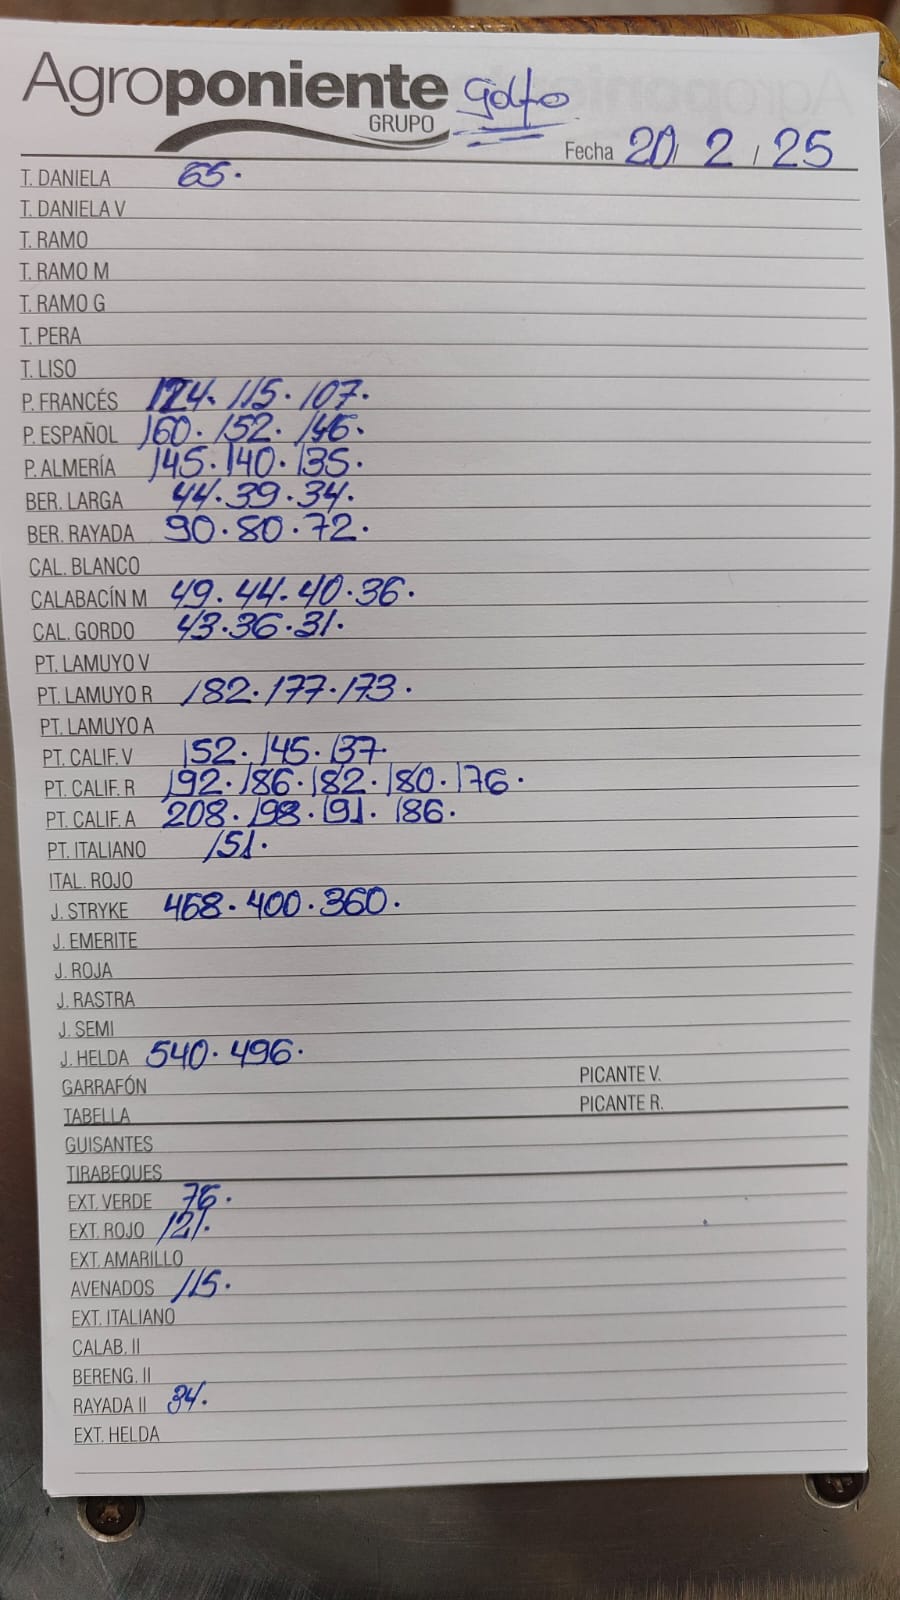 Agroponiente Golfo
GRUPO
Fecha 20 / 2 / 25
T. DANIELA 65.
T. DANIELA V
T. RAMO
T. RAMO M
T. RAMO G
T. PERA
T. LISO
P. FRANCÉS 124. 115. 107.
P. ESPAÑOL 160. 152. 146.
P. ALMERÍA 145. 140. 135.
BER. LARGA 44. 39. 34.
BER. RAYADA 90. 80. 72.
CAL. BLANCO
CALABACÍN M 49. 44. 40. 36.
CAL. GORDO 43. 36. 31.
PT. LAMUYO V
PT. LAMUYO R 182. 177. 173.
PT. LAMUYO A
PT. CALIF. V 152. 145. 137.
PT. CALIF. R 192. 186. 182. 180. 176.
PT. CALIF. A 208. 198. 191. 186.
PT. ITALIANO 151.
ITAL. ROJO
J. STRYKE 468. 400. 360.
J. EMERITE
J. ROJA
J. RASTRA
J. SEMI
J. HELDA 540. 496.
GARRAFÓN PICANTE V.
TABELLA PICANTE R.
GUISANTES
TIRABEQUES
EXT. VERDE 76.
EXT. ROJO 121.
EXT. AMARILLO
AVENADOS 115.
EXT. ITALIANO
CALAB. II
BERENG. II
RAYADA II 34.
EXT. HELDA